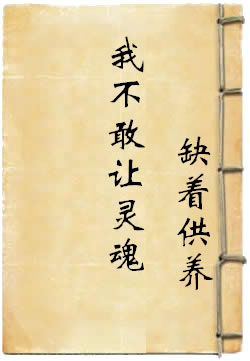 我不敢让灵魂
缺着供养